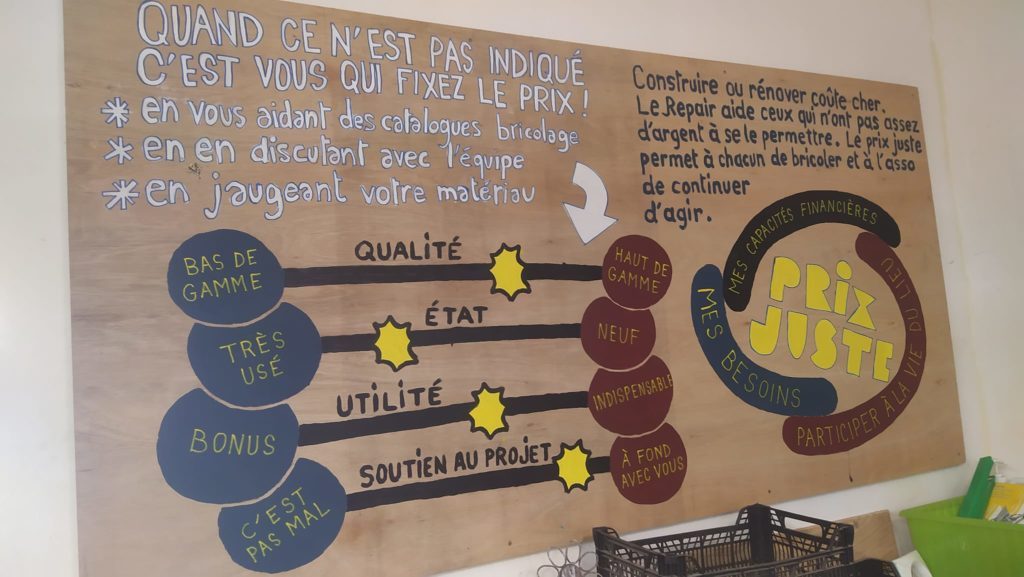 QUAND CE N'EST PAS INDIQUÉ
C'EST VOUS QUI FIXEZ LE PRIX !
* en vous aidant des catalogues bricolage
* en en discutant avec l'équipe
* en jaugeant votre matériau
Construire ou rénover coûte cher.
Le Repair aide ceux qui n'ont pas assez
d'argent à se le permettre. Le prix juste
permet à chacun de bricoler et à l'asso
de continuer
d'agir.
BAS DE
GAMME
QUALITÉ
HAUT DE
GAMME
TRÈS
USÉ
ÉTAT
NEUF
BONUS
UTILITÉ
INDISPENSABLE
C'EST
PAS MAL
SOUTIEN AU PROJET
À FOND
AVEC VOUS
MES CAPACITÉS FINANCIÈRES
MES BESOINS
PARTICIPER À LA VIE DU LIEU
PRIX
JUSTE